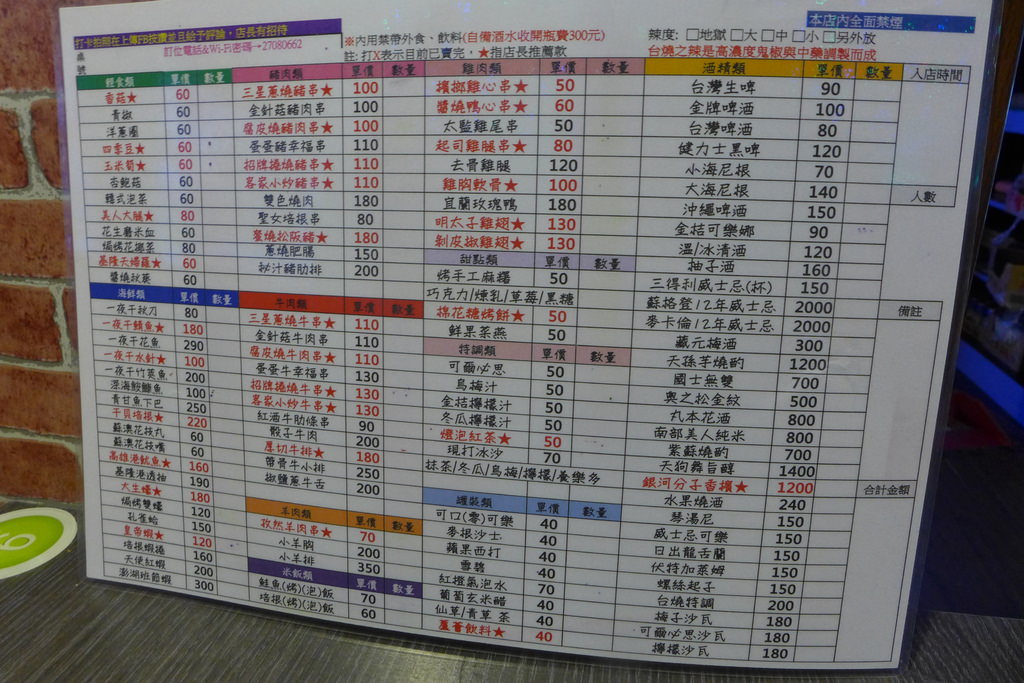 打卡拍照在上傳FB按讚並且給予評論，店長有招待
訂位電話&Wi-Fi密碼→27080662
桌號
※內用禁帶外食、飲料(自備酒水收開瓶費300元)
註: 打X表示目前已賣完，★指店長推薦款
本店內全面禁煙
辣度: □地獄 □大 □中 □小 □另外放
台燒之辣是高濃度鬼椒與中藥調製而成
輕食類 單價 數量
香菇★ 60
青椒 60
洋蔥圈 60
四季豆★ 60
玉米筍★ 60
杏鮑菇 60
韓式泡菜 60
美人大腿★ 80
花生磨米血 60
焗烤花椰菜 80
基隆天婦羅★ 60
醬燒秋葵 60
海鮮類 單價 數量
一夜干秋刀 80
一夜干鯖魚★ 180
一夜干花魚 290
一夜干水針★ 100
一夜干竹莢魚 200
深海鮟鱇魚 100
青甘魚下巴 250
干貝培根★ 220
蘇澳花枝丸 60
蘇澳花枝嘴 60
高雄港魷魚★ 160
基隆港透抽 190
大生蠔★ 180
焗烤雙蠔 120
孔雀蛤 150
皇帝蝦★ 120
培根蝦捲 160
天使紅蝦 200
澎湖斑節蝦 300
豬肉類 單價 數量
三星蔥燒豬肉串★ 100
金針菇豬肉串 100
腐皮燒豬肉串★ 100
蛋蛋豬幸福串 110
招牌捲燒豬串★ 110
客家小炒豬串★ 110
雙色燒肉 180
聖女培根串 80
蜜燒松阪豬★ 180
蔥燒肥腸 150
祕汁豬肋排 200
牛肉類 單價 數量
三星蔥燒牛串★ 110
金針菇牛肉串 110
腐皮燒牛肉串★ 110
蛋蛋牛幸福串 130
招牌捲燒牛串★ 130
客家小炒牛串★ 130
紅酒牛肋條串 90
骰子牛肉 200
厚切牛排★ 180
帶骨牛小排 250
椒鹽蔥牛舌 200
羊肉類 單價 數量
孜然羊肉串★ 70
小羊胸 200
小羊排 350
米飯類 單價 數量
鮭魚(烤)(泡)飯 70
培根(烤)(泡)飯 60
雞肉類 單價 數量
檳榔雞心串★ 50
醬燒鴨心串★ 60
太監雞尾串 50
起司雞腿串★ 80
去骨雞腿 120
雞胸軟骨★ 100
宜蘭玫瑰鴨 180
明太子雞翅★ 130
剝皮椒雞翅★ 130
甜點類 單價 數量
烤手工麻糬 50
巧克力/煉乳/草莓/黑糖
棉花糖烤餅★ 50
鮮果茶燕 50
特調類 單價 數量
可爾必思 50
烏梅汁 50
金桔檸檬汁 50
冬瓜檸檬汁 50
燈泡紅茶★ 50
現打冰沙 70
抹茶/冬瓜/烏梅/檸檬/養樂多
罐裝類 單價 數量
可口(零)可樂 40
麥根沙士 40
蘋果西打 40
雪碧 40
紅橙氣泡水 70
葡萄玄米醋 40
仙草/青草茶 40
蘆薈飲料★ 40
酒精類 單價 數量
台灣生啤 90
金牌啤酒 100
台灣啤酒 80
健力士黑啤 120
小海尼根 70
大海尼根 140
沖繩啤酒 150
金桔可樂娜 90
溫/冰清酒 120
柚子酒 160
三得利威士忌(杯) 150
蘇格登12年威士忌 2000
麥卡倫12年威士忌 2000
藏元梅酒 300
天孫芋燒酌 1200
國士無雙 700
奧之松金紋 500
丸本花酒 800
南部美人純米 800
紫蘇燒酌 700
天狗舞旨醇 1400
銀河分子香檳★ 1200
水果燒酒 240
琴湯尼 150
威士忌可樂 150
日出龍舌蘭 150
伏特加萊姆 150
螺絲起子 150
台燒特調 200
梅子沙瓦 180
可爾必思沙瓦 180
檸檬沙瓦 180
入店時間
人數
備註
合計金額